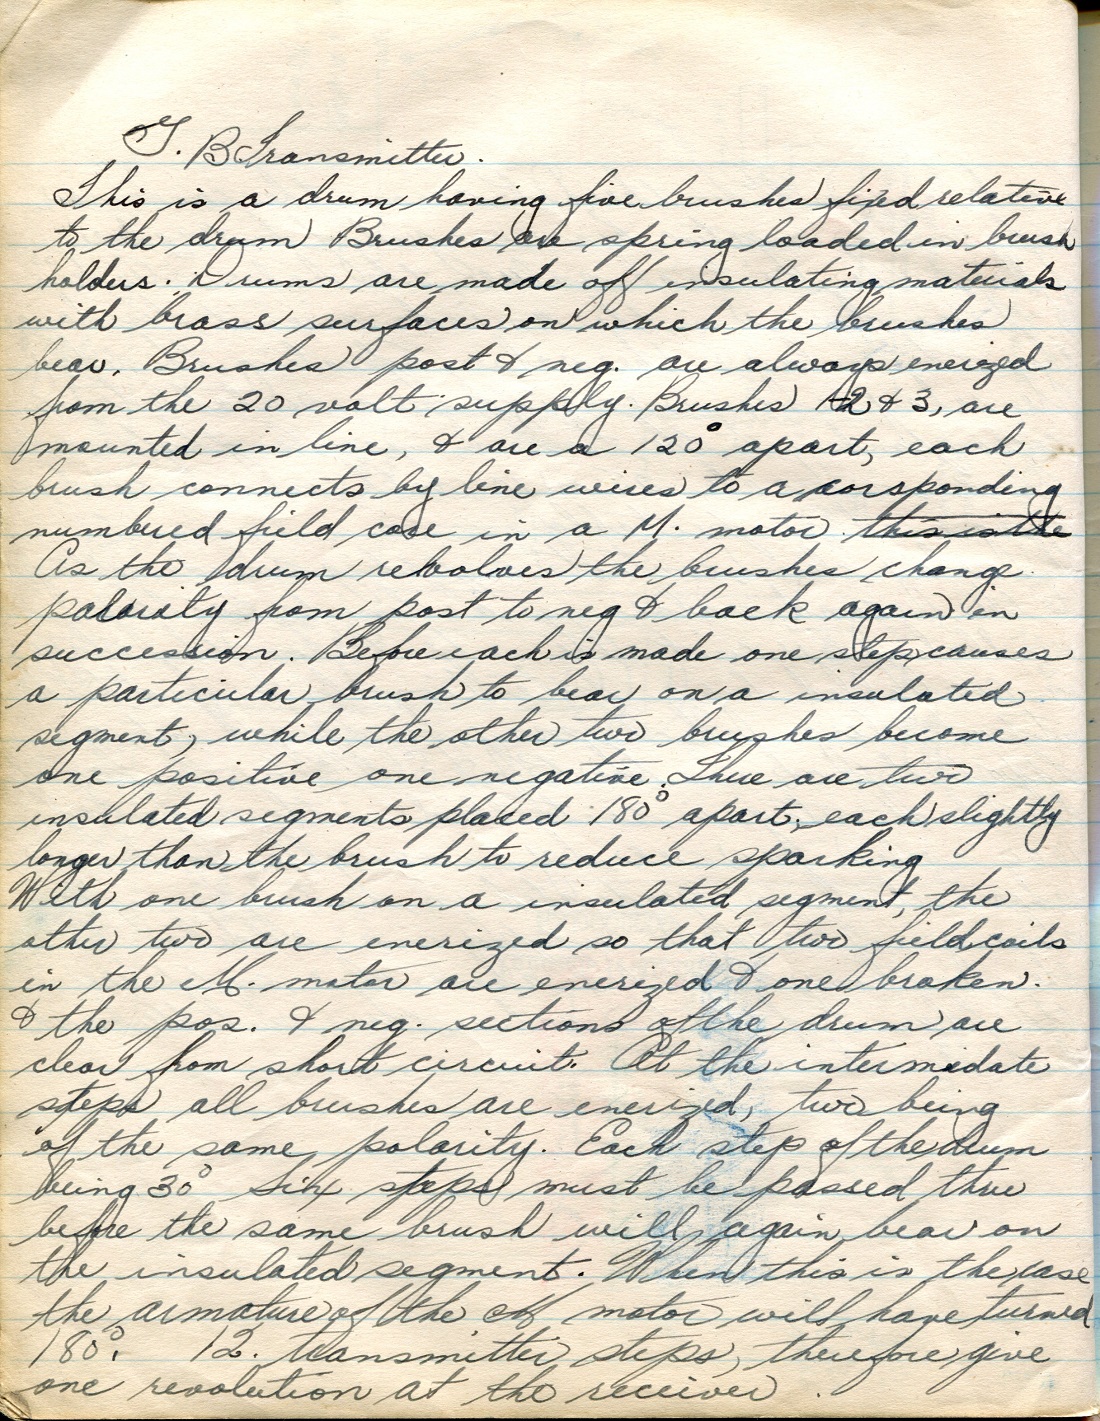 T. B Transmitter.
This is a drum having five brushes fixed relative
to the drum Brushes are spring loaded in brush
holders. Drums are made off insulating materials
with brass surfaces on which the brushes
bear. Brushes post & neg. are always enerized
from the 20 volt supply. Brushes 1 2 & 3, are
mounted in line, & are a 120° apart, each
brush connects by line wires to a corsponding
numbered field core in a M. motor. this is the
As the drum revolves the brushes change
polarity from post to neg & back again in
succession. Before each is made one step causes
a particular brush to bear on a insulated
segment, while the other two brushes become
one positive one negative. There are two
insulated segments placed 180° apart, each slightly
longer than the brush to reduce sparking
With one brush on a insulated segment, the
other two are enerized so that two field coils
in the M. motor are enerized & one broken.
& the pos. & neg. sections of the drum are
clear from short circuit. At the intermidate
steps all brushes are enerized, two being
of the same polarity. Each step of the drum
being 30° six steps must be passed thru
before the same brush will again bear on
the insulated segment. When this is the case
the armature of the M motor will have turned
180°. 12. transmitter steps, therefore give
one revolution at the receiver.